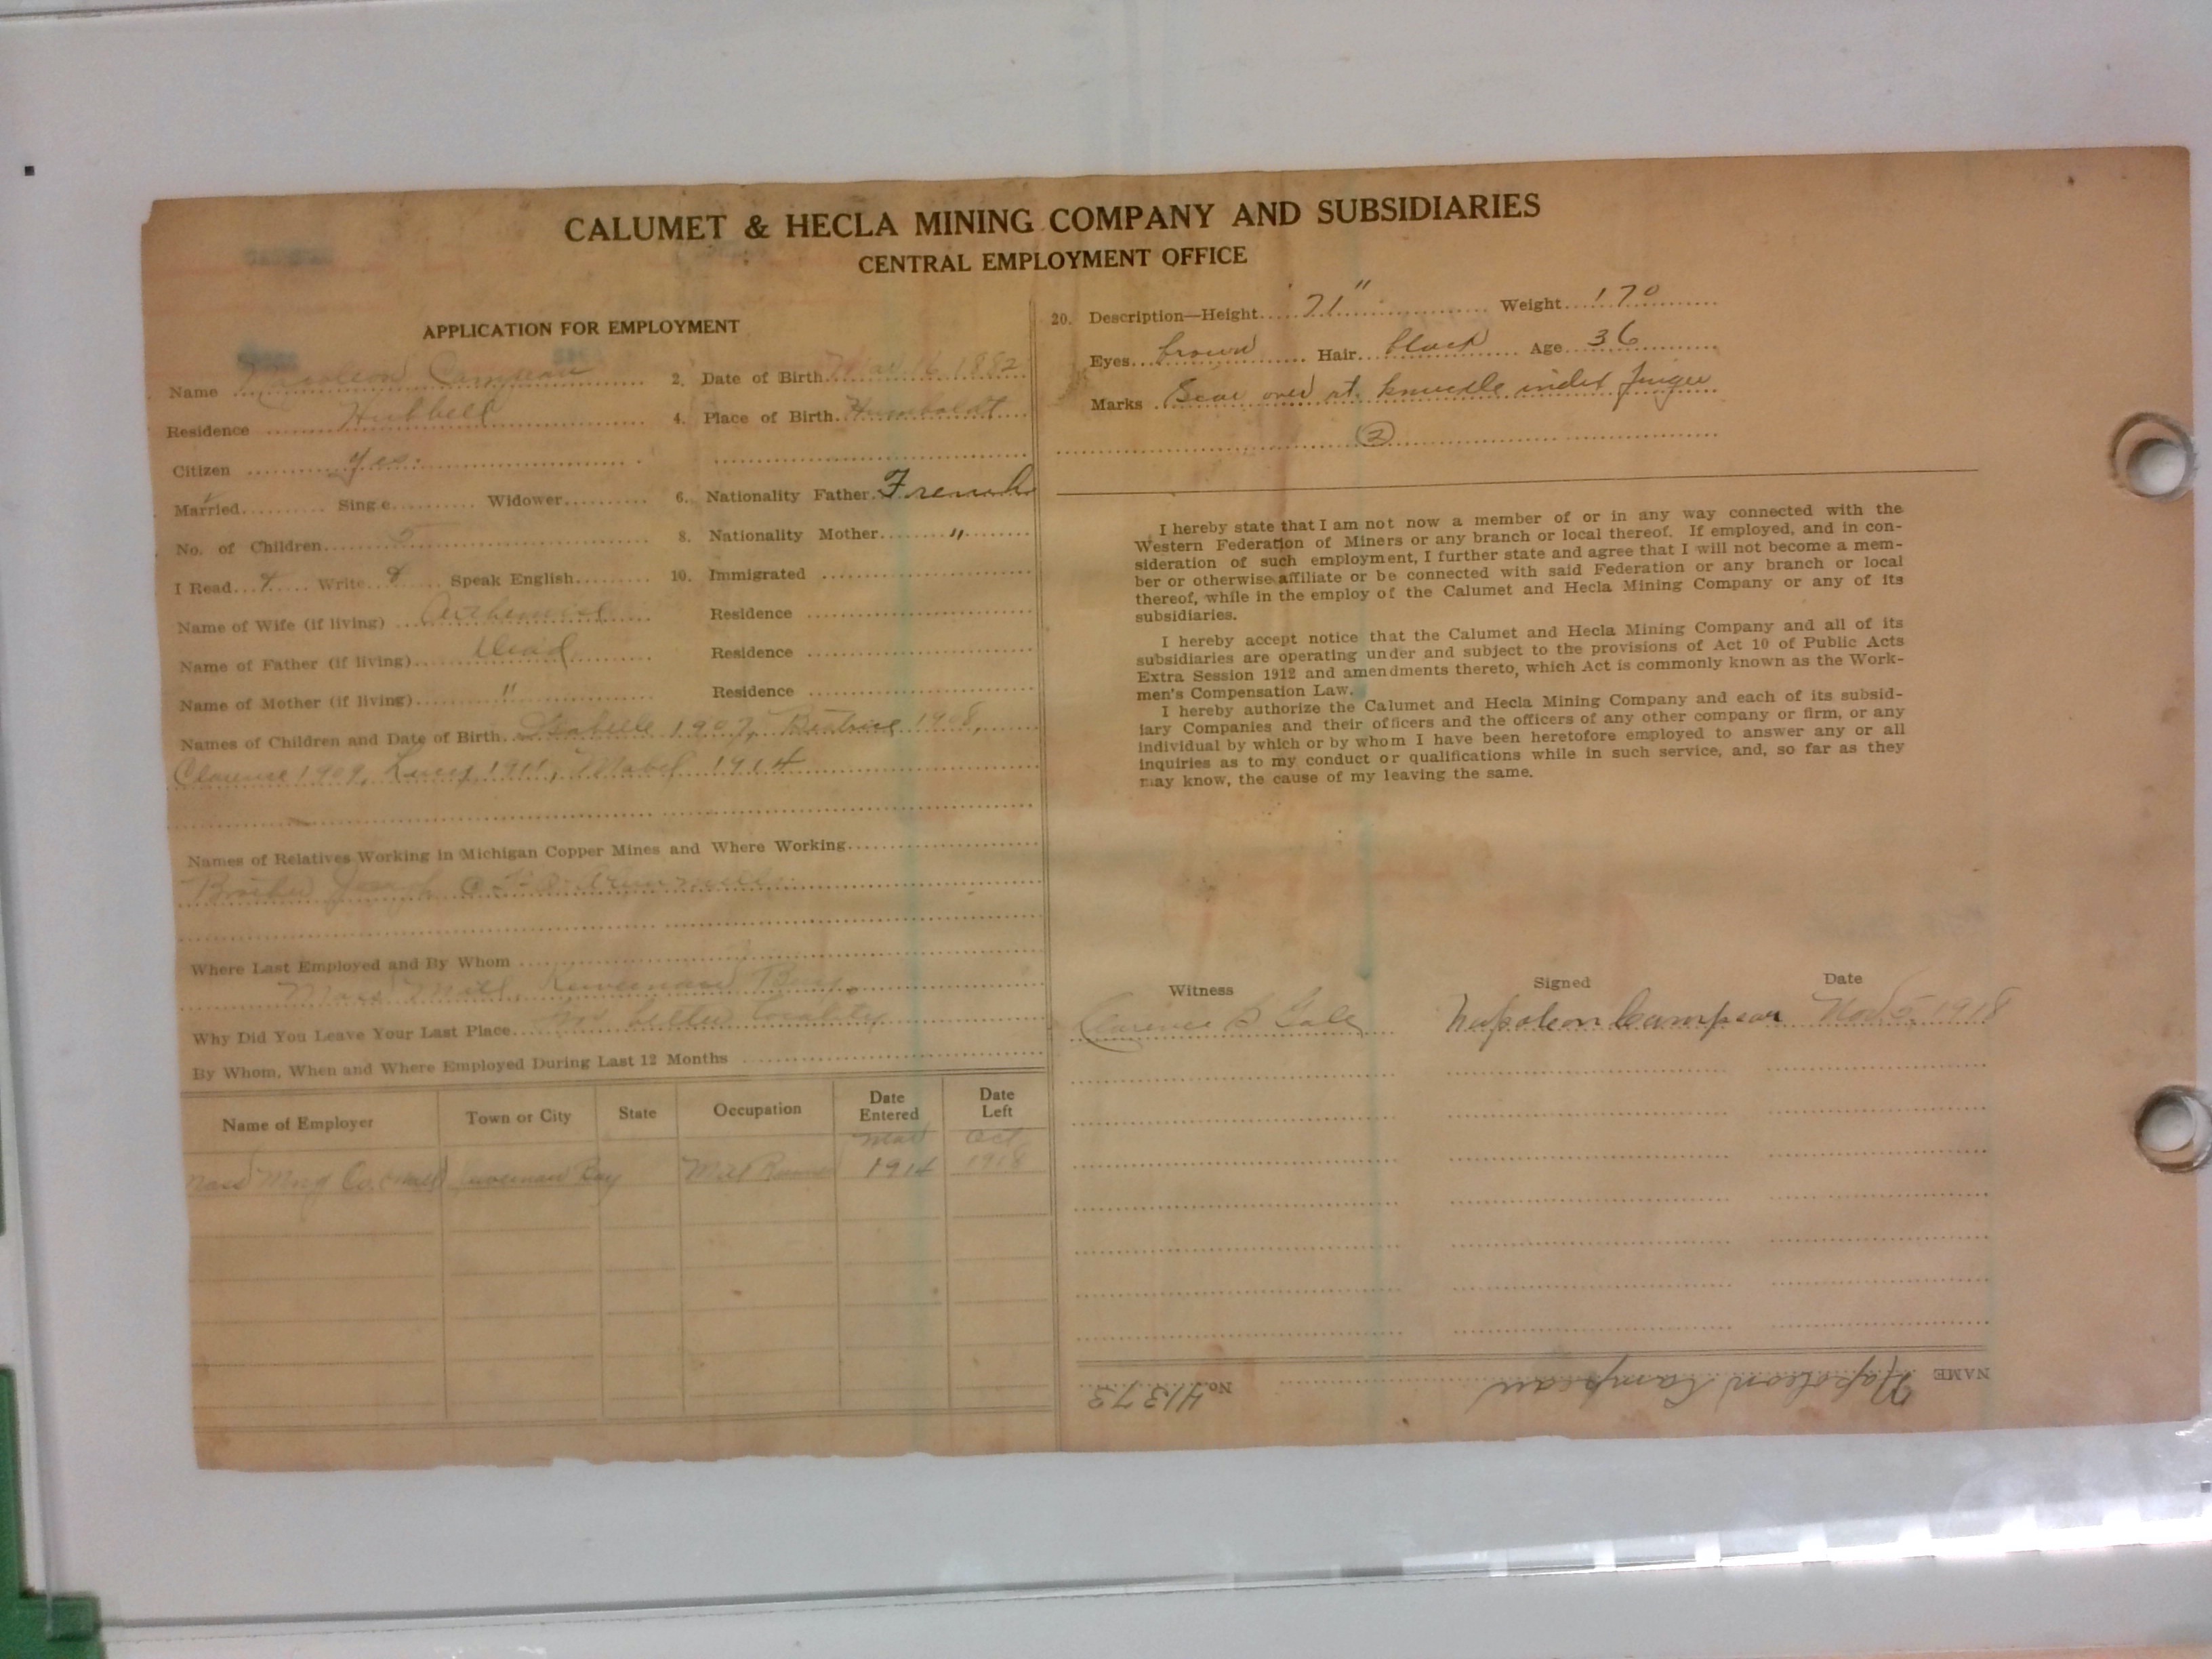 CALUMET & HECLA MINING COMPANY AND SUBSIDIARIES
CENTRAL EMPLOYMENT OFFICE
APPLICATION FOR EMPLOYMENT
Name Napoleon Campeau
2. Date of Birth Mar 16 1882
Residence Hubbell
4. Place of Birth Humboldt
Citizen Yes.
Married Single Widower
6. Nationality Father French
No. of Children 5
8. Nationality Mother "
I Read Write Speak English
10. Immigrated
Name of Wife (if living)
Residence
Name of Father (if living) Dead
Residence
Name of Mother (if living) "
Residence
Names of Children and Date of Birth. Isabelle 1907, Beatrice 1908,
Clarence 1909, Lucy 1911, Mabel 1914
Names of Relatives Working in Michigan Copper Mines and Where Working
Brother Joseph @
Where Last Employed and By Whom
Mass Mill, Keweenaw Bay.
Why Did You Leave Your Last Place better locality
By Whom, When and Where Employed During Last 12 Months
Name of Employer Town or City State Occupation Date Entered Date Left
Mar Oct
Mass Mng Co. (Mill) Keweenaw Bay Mill Runner 1914 1918
20. Description—Height 71" Weight 170
Eyes brown Hair black Age 36
Marks Scar over rt. knuckle index finger
2
I hereby state that I am not now a member of or in any way connected with the
Western Federation of Miners or any branch or local thereof. If employed, and in con-
sideration of such employment, I further state and agree that I will not become a mem-
ber or otherwise affiliate or be connected with said Federation or any branch or local
thereof, while in the employ of the Calumet and Hecla Mining Company or any of its
subsidiaries.
I hereby accept notice that the Calumet and Hecla Mining Company and all of its
subsidiaries are operating under and subject to the provisions of Act 10 of Public Acts
Extra Session 1912 and amendments thereto, which Act is commonly known as the Work-
men's Compensation Law.
I hereby authorize the Calumet and Hecla Mining Company and each of its subsid-
iary Companies and their officers and the officers of any other company or firm, or any
individual by which or by whom I have been heretofore employed to answer any or all
inquiries as to my conduct or qualifications while in such service, and, so far as they
may know, the cause of my leaving the same.
Witness Signed Date
Clarence B Gale Napoleon Campeau Nov 5, 1918
NAME Napoleon Campeau No. 41373